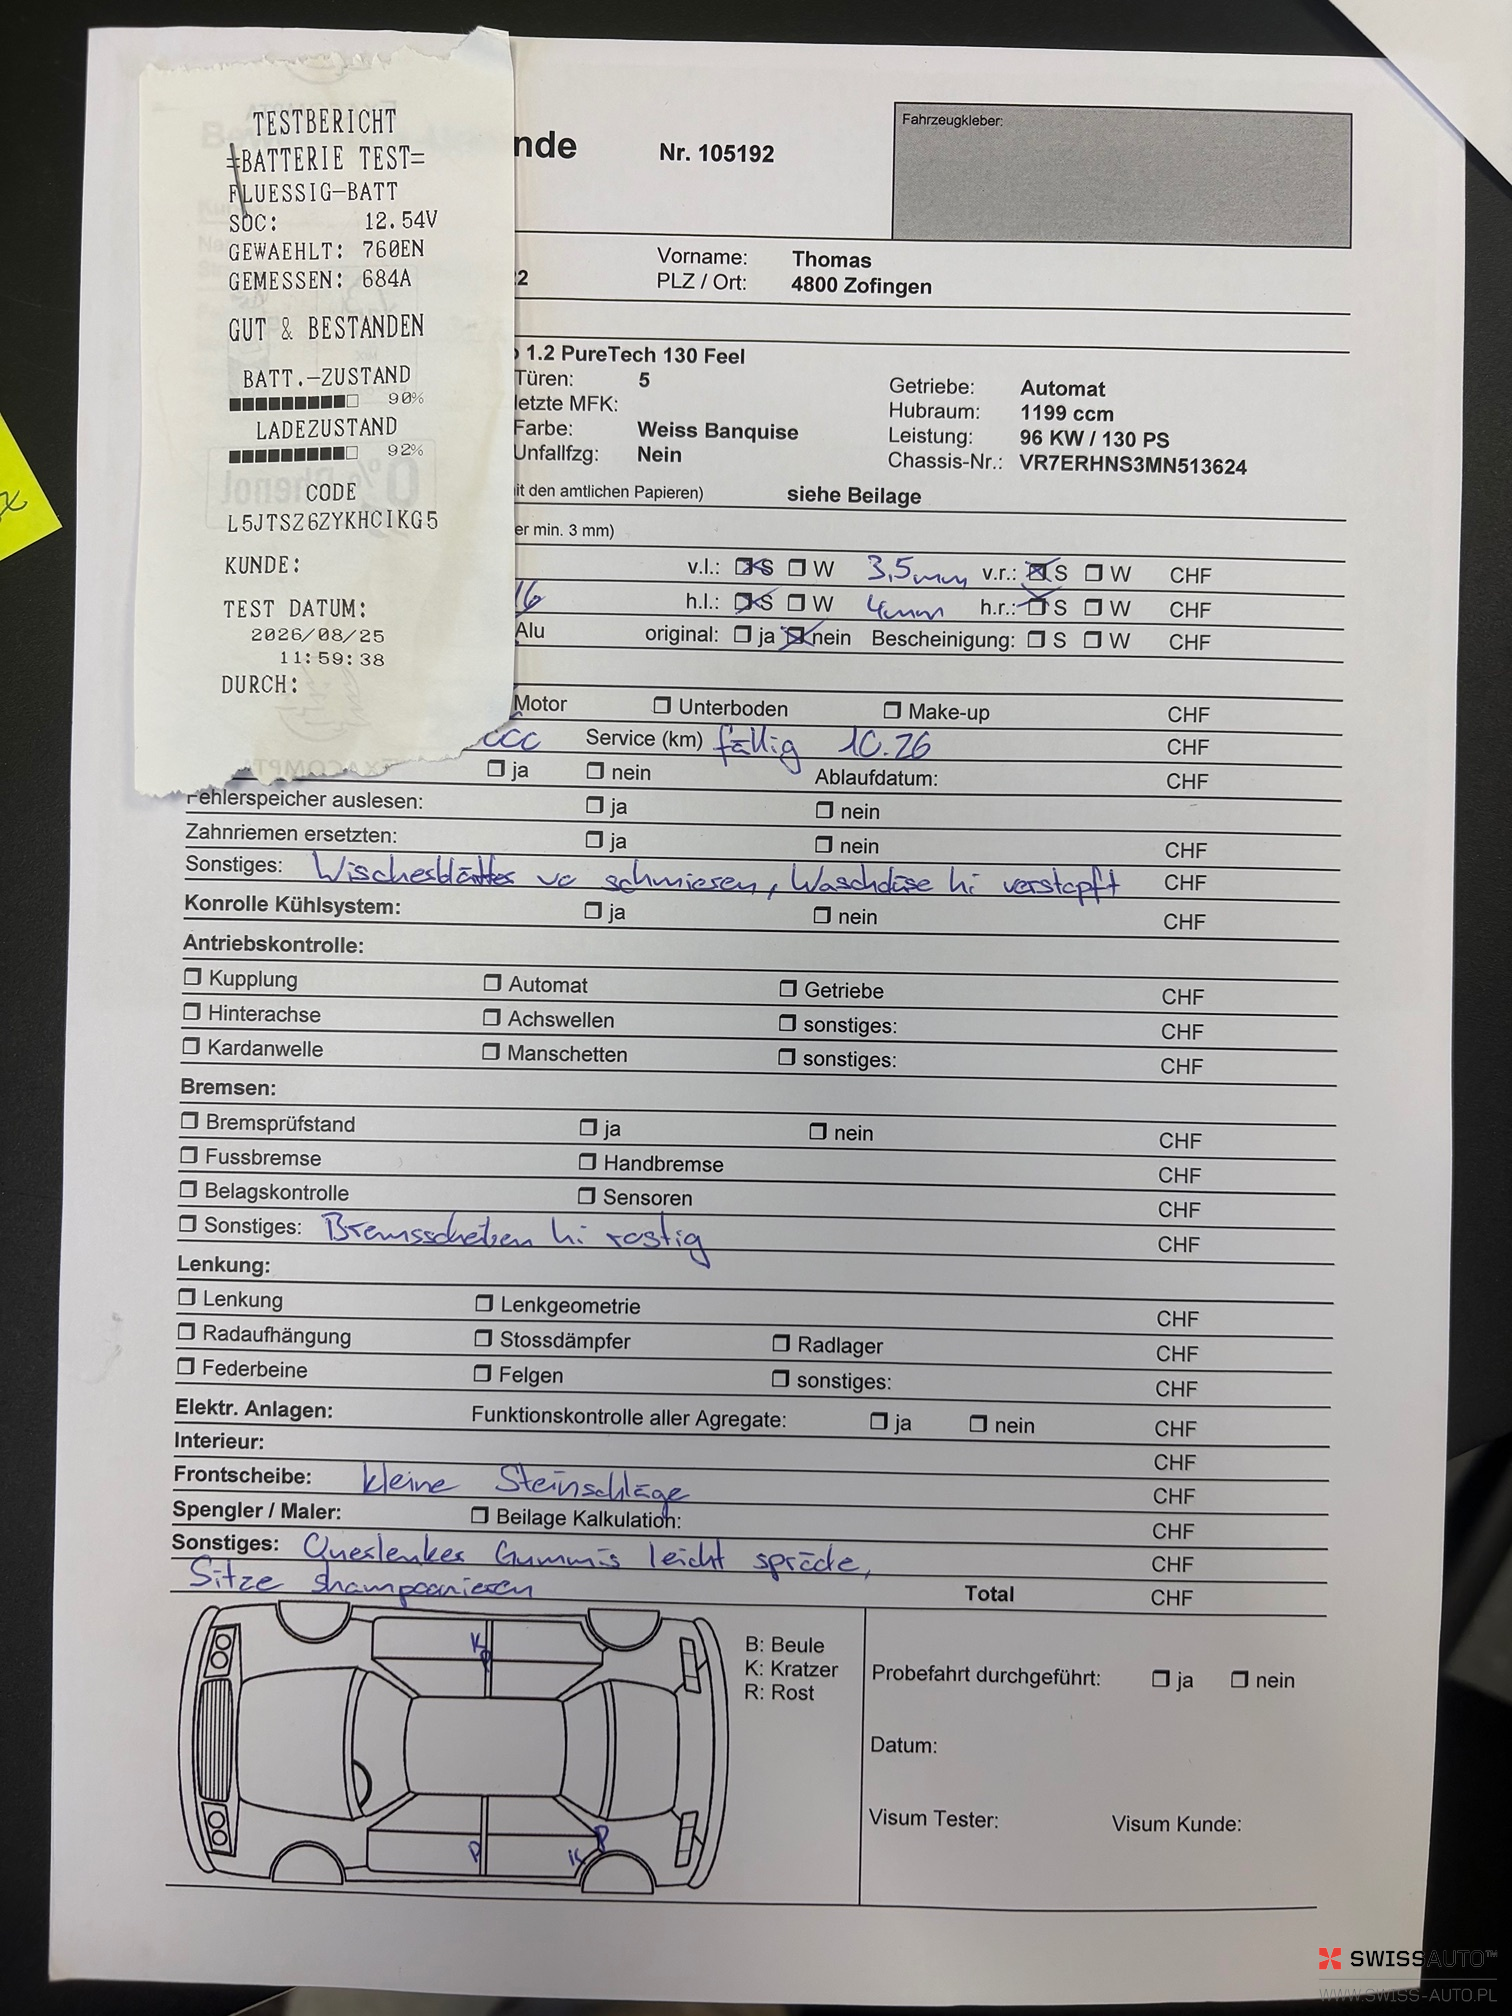 TESTBERICHT
=BATTERIE TEST=
FLUESSIG-BATT
SOC: 12.54V
GEWAEHLT: 760EN
GEMESSEN: 684A
GUT & BESTANDEN
BATT.-ZUSTAND
90%
LADEZUSTAND
92%
CODE
L5JTSZ6ZYKHCIKG5
KUNDE:
TEST DATUM:
2026/08/25
11:59:38
DURCH:
nde Nr. 105192
Fahrzeugkleber:
Vorname: Thomas
2 PLZ / Ort: 4800 Zofingen
1.2 PureTech 130 Feel
Türen: 5 Getriebe: Automat
letzte MFK: Hubraum: 1199 ccm
Farbe: Weiss Banquise Leistung: 96 KW / 130 PS
Unfallfzg: Nein Chassis-Nr.: VR7ERHNS3MN513624
it den amtlichen Papieren) siehe Beilage
er min. 3 mm)
v.l.: S W 3,5mm v.r.: S W CHF
16 h.l.: S W 4mm h.r.: S W CHF
Alu original: ja nein Bescheinigung: S W CHF
Motor Unterboden Make-up CHF
Service (km) fällig 10.26 CHF
ja nein Ablaufdatum: CHF
Fehlerspeicher auslesen: ja nein
Zahnriemen ersetzten: ja nein CHF
Sonstiges: Wischerblätter vo schmieren, Waschdüse hi verstopft CHF
Konrolle Kühlsystem: ja nein CHF
Antriebskontrolle:
Kupplung Automat Getriebe CHF
Hinterachse Achswellen sonstiges: CHF
Kardanwelle Manschetten sonstiges: CHF
Bremsen:
Bremsprüfstand ja nein CHF
Fussbremse Handbremse CHF
Belagskontrolle Sensoren CHF
Sonstiges: Bremsscheiben hi rostig CHF
Lenkung:
Lenkung Lenkgeometrie CHF
Radaufhängung Stossdämpfer Radlager CHF
Federbeine Felgen sonstiges: CHF
Elektr. Anlagen: Funktionskontrolle aller Agregate: ja nein CHF
Interieur: CHF
Frontscheibe: kleine Steinschläge CHF
Spengler / Maler: Beilage Kalkulation: CHF
Sonstiges: Querlenker Gummis leicht spröde, CHF
Sitze shampoonieren Total CHF
K
P
B: Beule
K: Kratzer
R: Rost
Probefahrt durchgeführt: ja nein
Datum:
Visum Tester: Visum Kunde:
P
K
P
SWISSAUTO™
WWW.SWISS-AUTO.PL